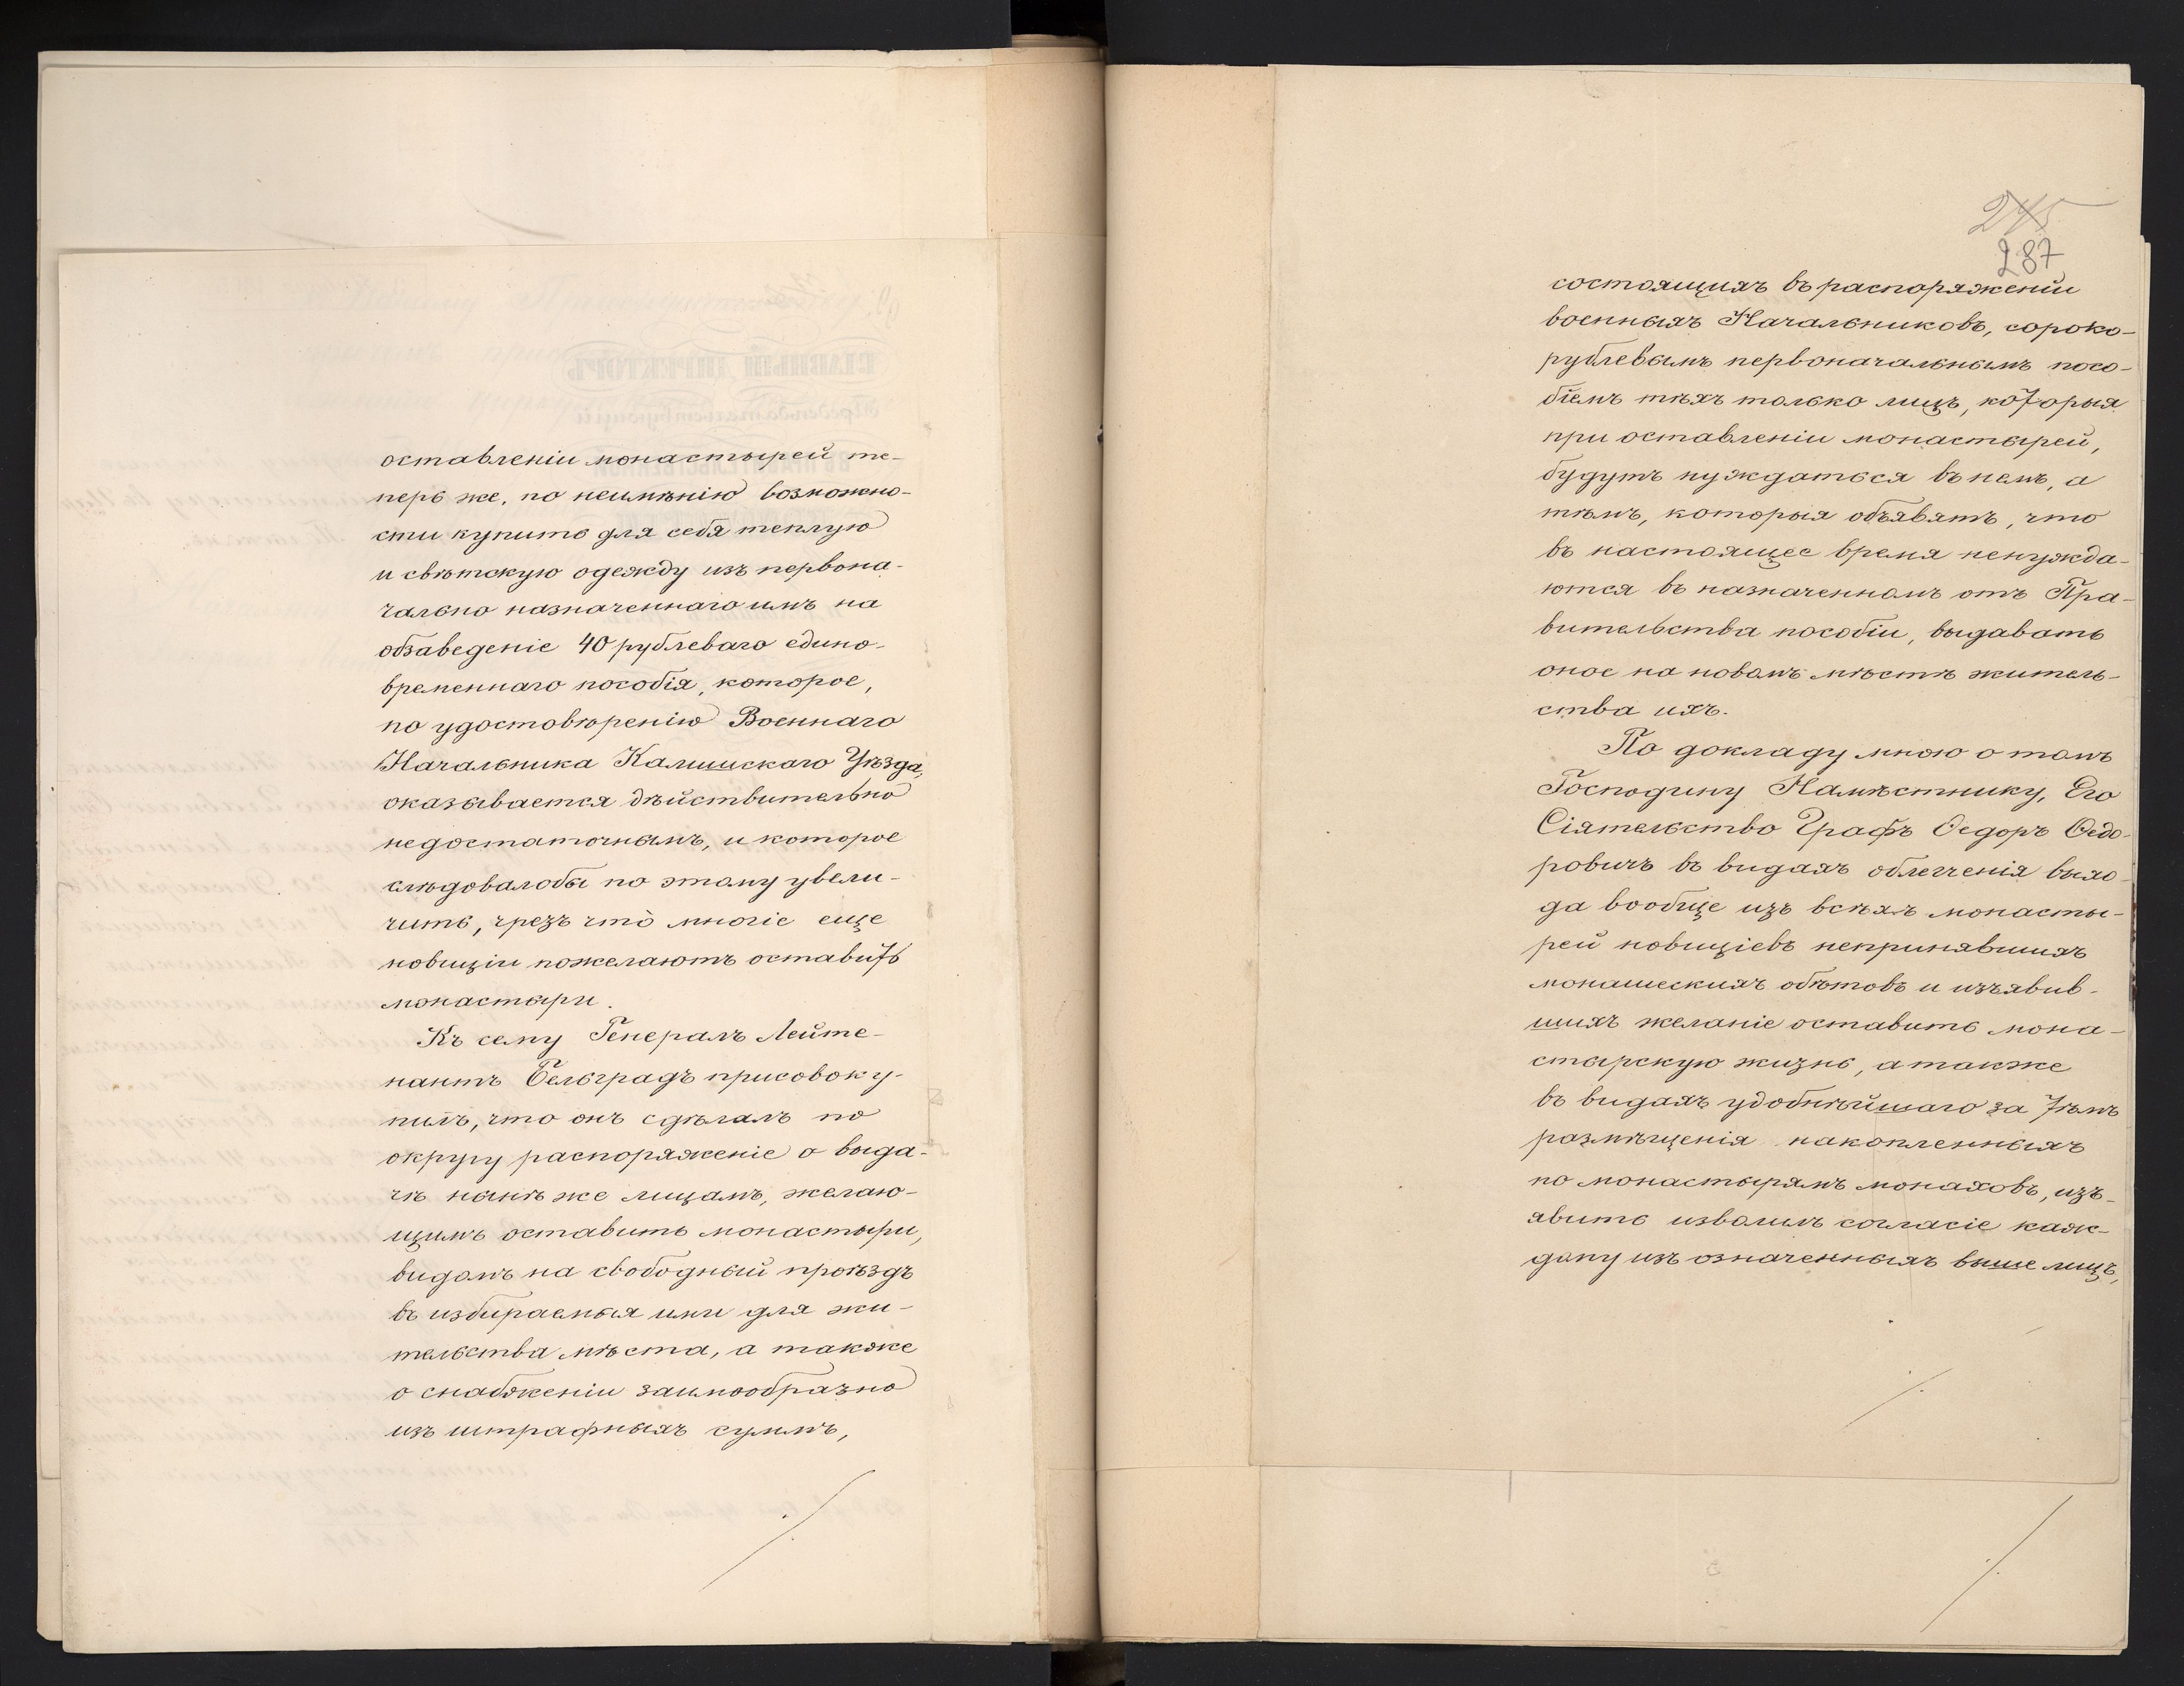 оставленіи монастырей те-
перь же, по неимѣнію возможно-
сти купить для себя теплую
и свѣтскую одежду изъ первона-
чально назначеннаго имъ на
обзаведеніе 40 рублеваго едино-
временнаго пособія, которое,
по удостовѣренію Военнаго
Начальника Калишскаго Уѣзда,
оказывается дѣйствительно
недостаточнымъ, и которое
слѣдовалобы по этому увели-
чить, чрезъ что̀ многіе еще
новиціи пожелаютъ оставить
монастыри.
Къ сему Генералъ Лейте-
нантъ Бельградъ присовоку-
пилъ, что онъ сдѣлалъ по
округу распоряженіе о выда-
чѣ нынѣ же лицамъ, желаю-
щимъ оставить монастыри,
видомъ на свободный проѣздъ
въ избираемыя ими для жи-
тельства мѣста, а также
о снабженіи заимообразно
изъ штрафныхъ суммъ,
245
287
состоящихъ въ распоряженіи
военныхъ Начальниковъ, сороко-
рублевымъ первоначальнымъ посо-
біемъ тѣхъ только лицъ, которыя
при оставленіи монастырей,
будутъ нуждаться въ немъ, а
тѣмъ, которыя объявятъ, что
въ настоящее время ненужда-
ются въ назначенномъ отъ Пра-
вительства пособіи, выдавать
оное на новомъ мѣстѣ житель-
ства ихъ.
По докладу мною о томъ
Господину Намѣстнику, Его
Сіятельство Графъ Ѳедоръ Ѳедо-
ровичъ въ видахъ облегченія выхо-
да вообще изъ всѣхъ монасты-
рей новиціевъ непринявшихъ
монашескихъ обѣтовъ и изъявив-
шихъ желаніе оставить мона-
стырскую жизнь, а также
въ видахъ удобнѣйшаго за тѣмъ
размѣщенія накопленныхъ
по монастырямъ монаховъ, изъ-
явить изволилъ согласіе каж-
дому изъ означенныхъ выше лицъ,